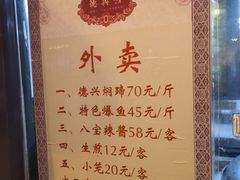 德兴
外卖
一、德兴焖蹄70元/斤
二、特色爆鱼45元/斤
三、八宝辣酱58元/客
四、生煎12元/客
五、小笼20元/客